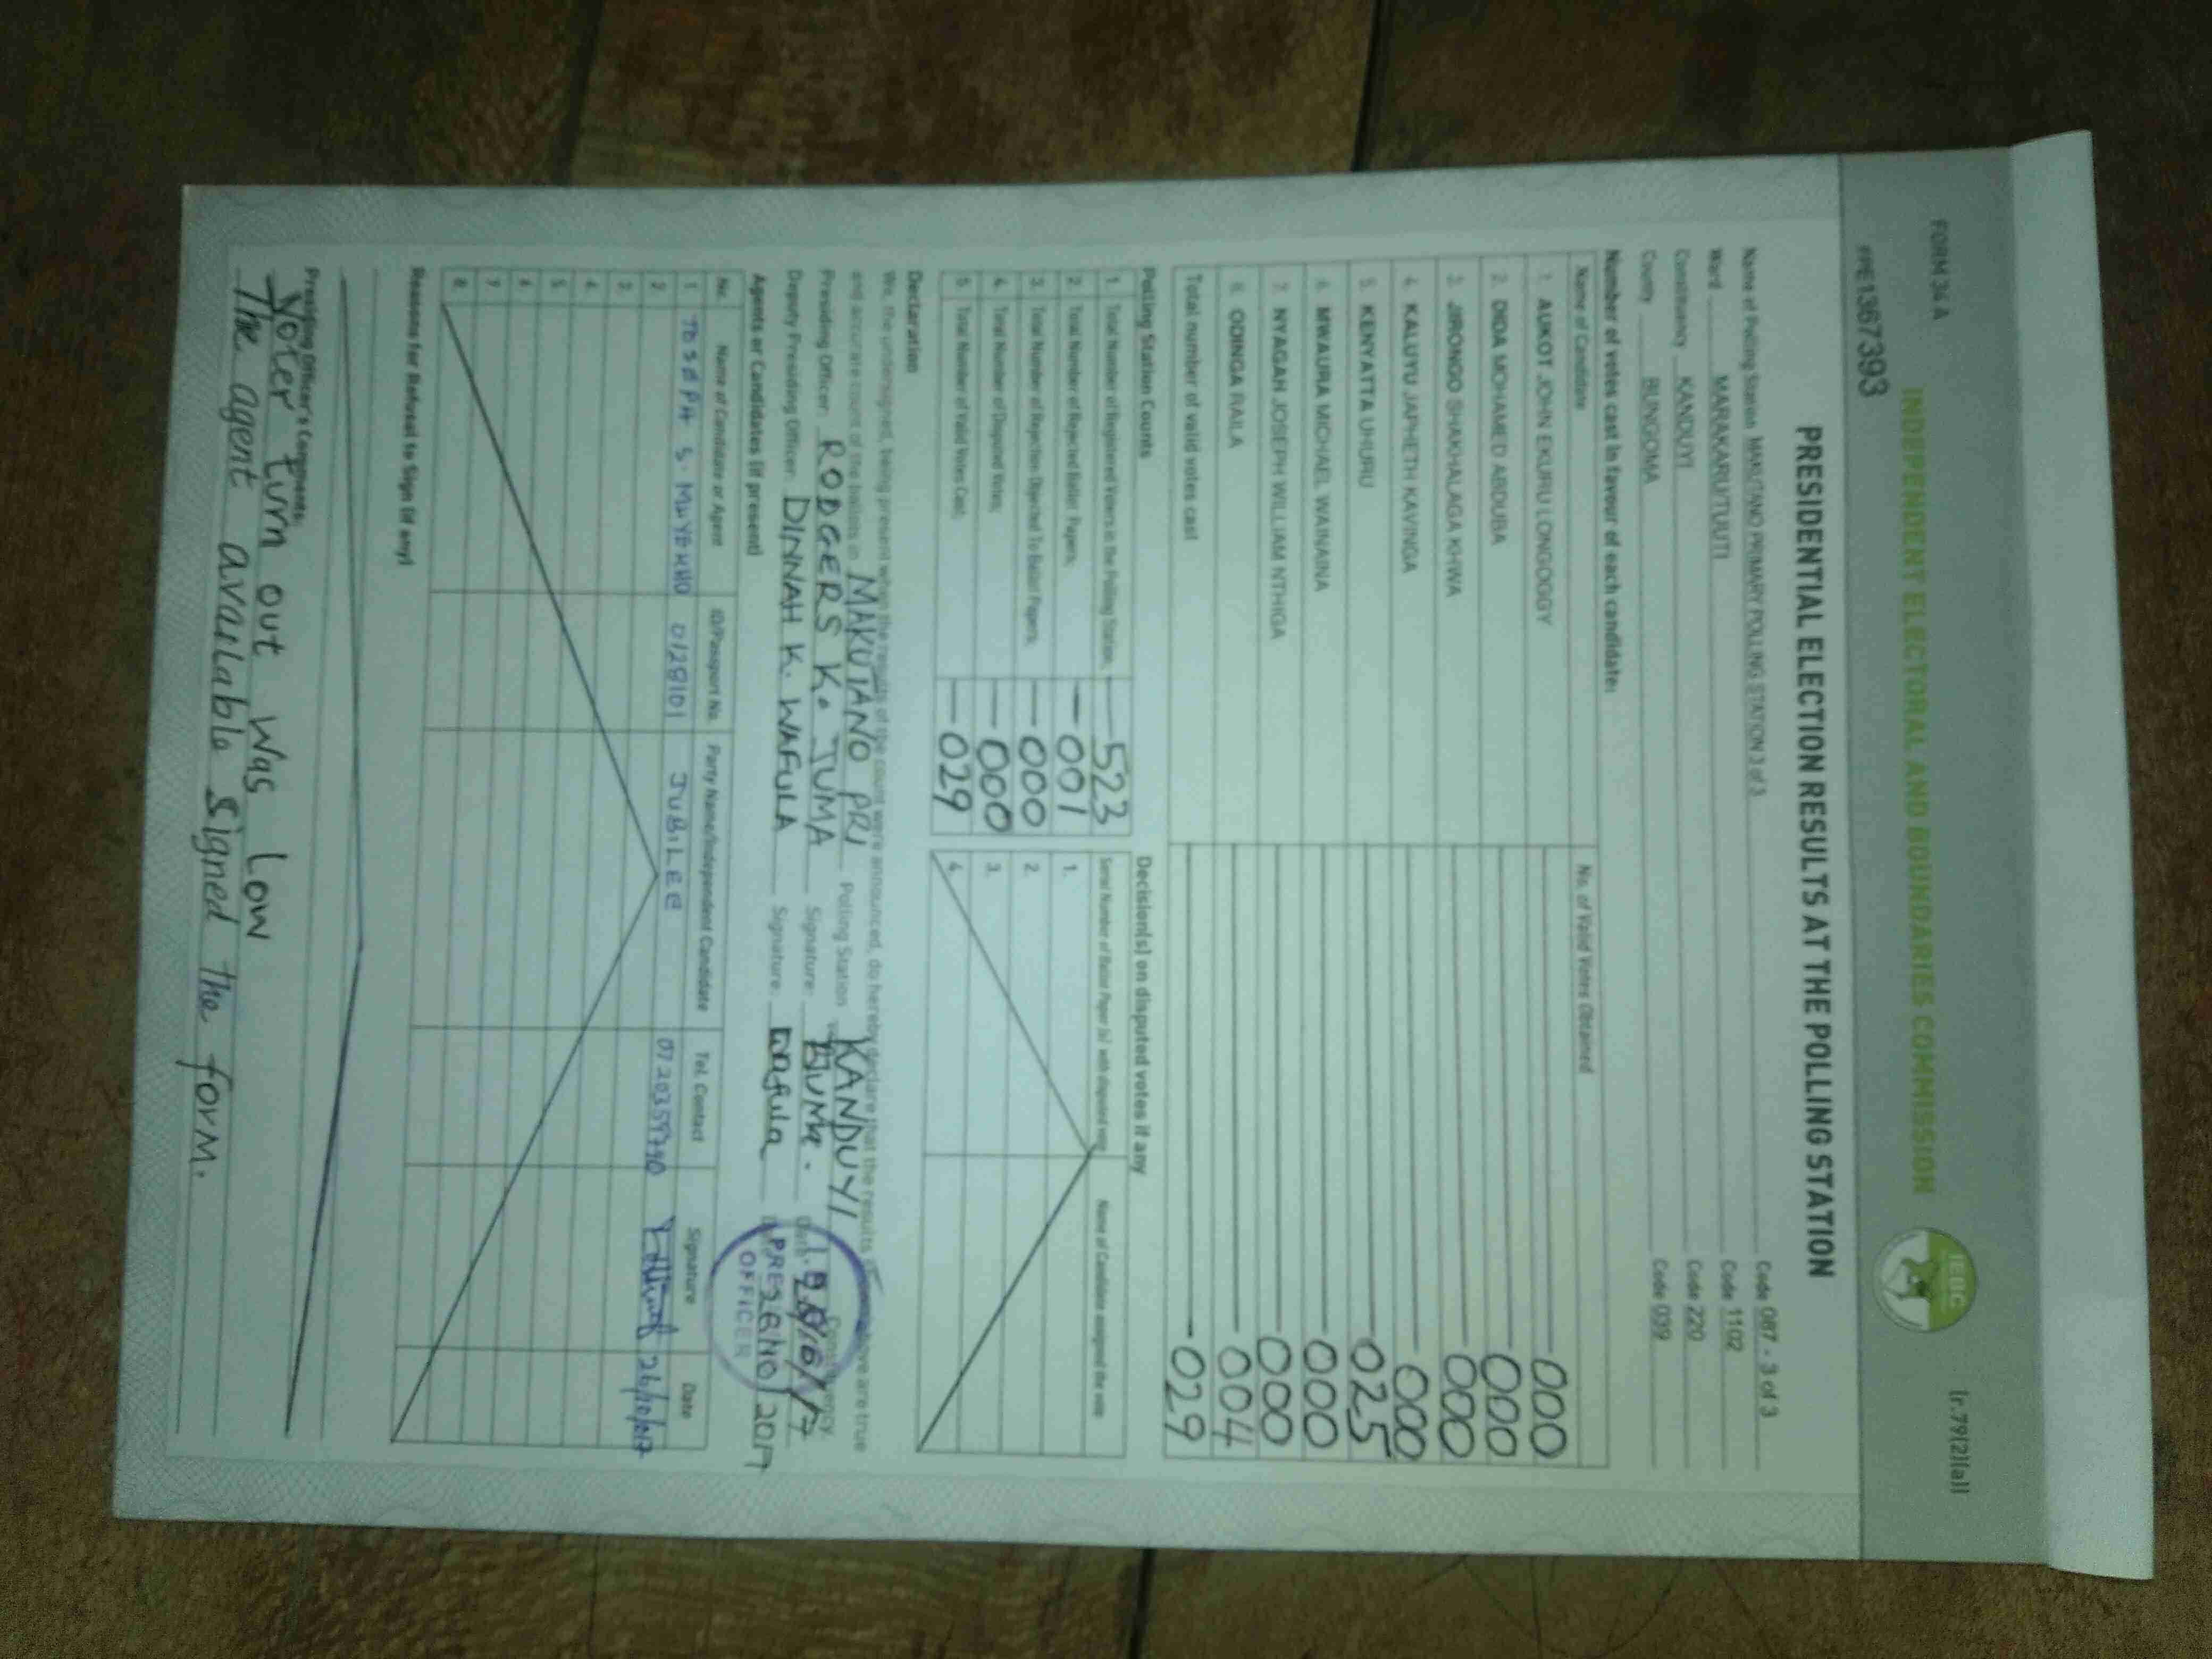 FORM 34 A
[r.79(2)(a)]
INDEPENDENT ELECTORAL AND BOUNDARIES COMMISSION
IEBC
PE1367393
PRESIDENTIAL ELECTION RESULTS AT THE POLLING STATION
Name of Polling Station MAKUTANO PRIMARY POLLING STATION 3 of 3 Code 087 - 3 of 3
Ward MARAKARU/TUUTI Code 1102
Constituency KANDUYI Code 220
County BUNGOMA Code 039
Number of votes cast in favour of each candidate:
Name of Candidate No. of Valid Votes Obtained
1. AUKOT JOHN EKURU LONGOGGY 000
2. DIDA MOHAMED ABDUBA 000
3. JIRONGO SHAKHALAGA KHWA 000
4. KALUYU JAPHETH KAVINGA 000
5. KENYATTA UHURU 025
6. MWAURA MICHAEL WAINAINA 000
7. NYAGAH JOSEPH WILLIAM NTHIGA 000
8. ODINGA RAILA 004
Total number of valid votes cast 029
Polling Station Counts
1. Total Number of Registered Voters in the Polling Station; 523
2. Total Number of Rejected Ballot Papers; 001
3. Total Number of Rejection Objected To Ballot Papers; 000
4. Total Number of Disputed Votes; 000
5. Total Number of Valid Votes Cast; 029
Decision(s) on disputed votes if any
Serial Number of Ballot Paper (s) with disputed vote Name of Candidate assigned the vote
1.
2.
3.
4.
Declaration
We, the undersigned, being present when the results of the count were announced, do hereby declare that the results above are true
and accurate count of the ballots in MAKUTANO PRI Polling Station KANDUYI Constituency
Presiding Officer: RODGERS K. JUMA Signature: Date:
Deputy Presiding Officer: DINNAH K. WAFULA Signature: Wafula
PRESIDING OFFICER
Agents or Candidates (if present)
No. Name of Candidate or Agent ID/Passport No. Party Name/Independent Candidate Tel. Contact Signature Date
1. JOSEPH S. 0128101 JUBILEE 0720359790 26/10/2017
2.
3.
4.
5.
6.
7.
8.
Reasons for Refusal to Sign (if any)
Presiding Officer's Comments:
Voter turn out was Low
The agent available signed the form.